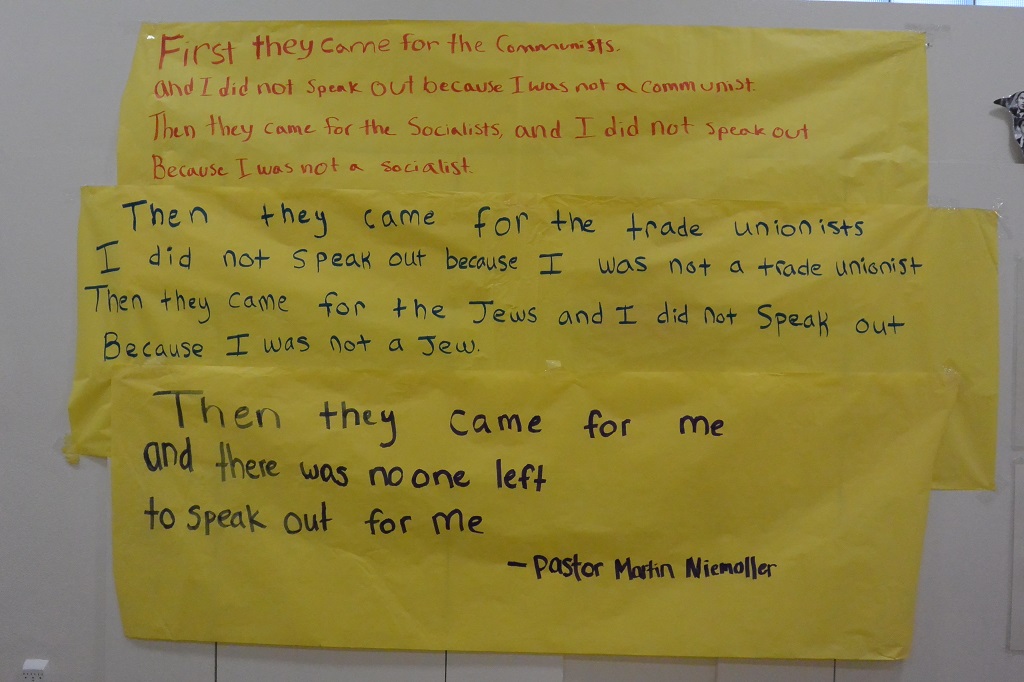 First they came for the Communists.
and I did not speak out because I was not a communist.
Then they came for the Socialists, and I did not speak out
Because I was not a socialist.
Then they came for the trade unionists
I did not speak out because I was not a trade unionist
Then they came for the Jews and I did not speak out
Because I was not a Jew.
Then they came for me
and there was no one left
to speak out for me
- Pastor Martin Niemoller